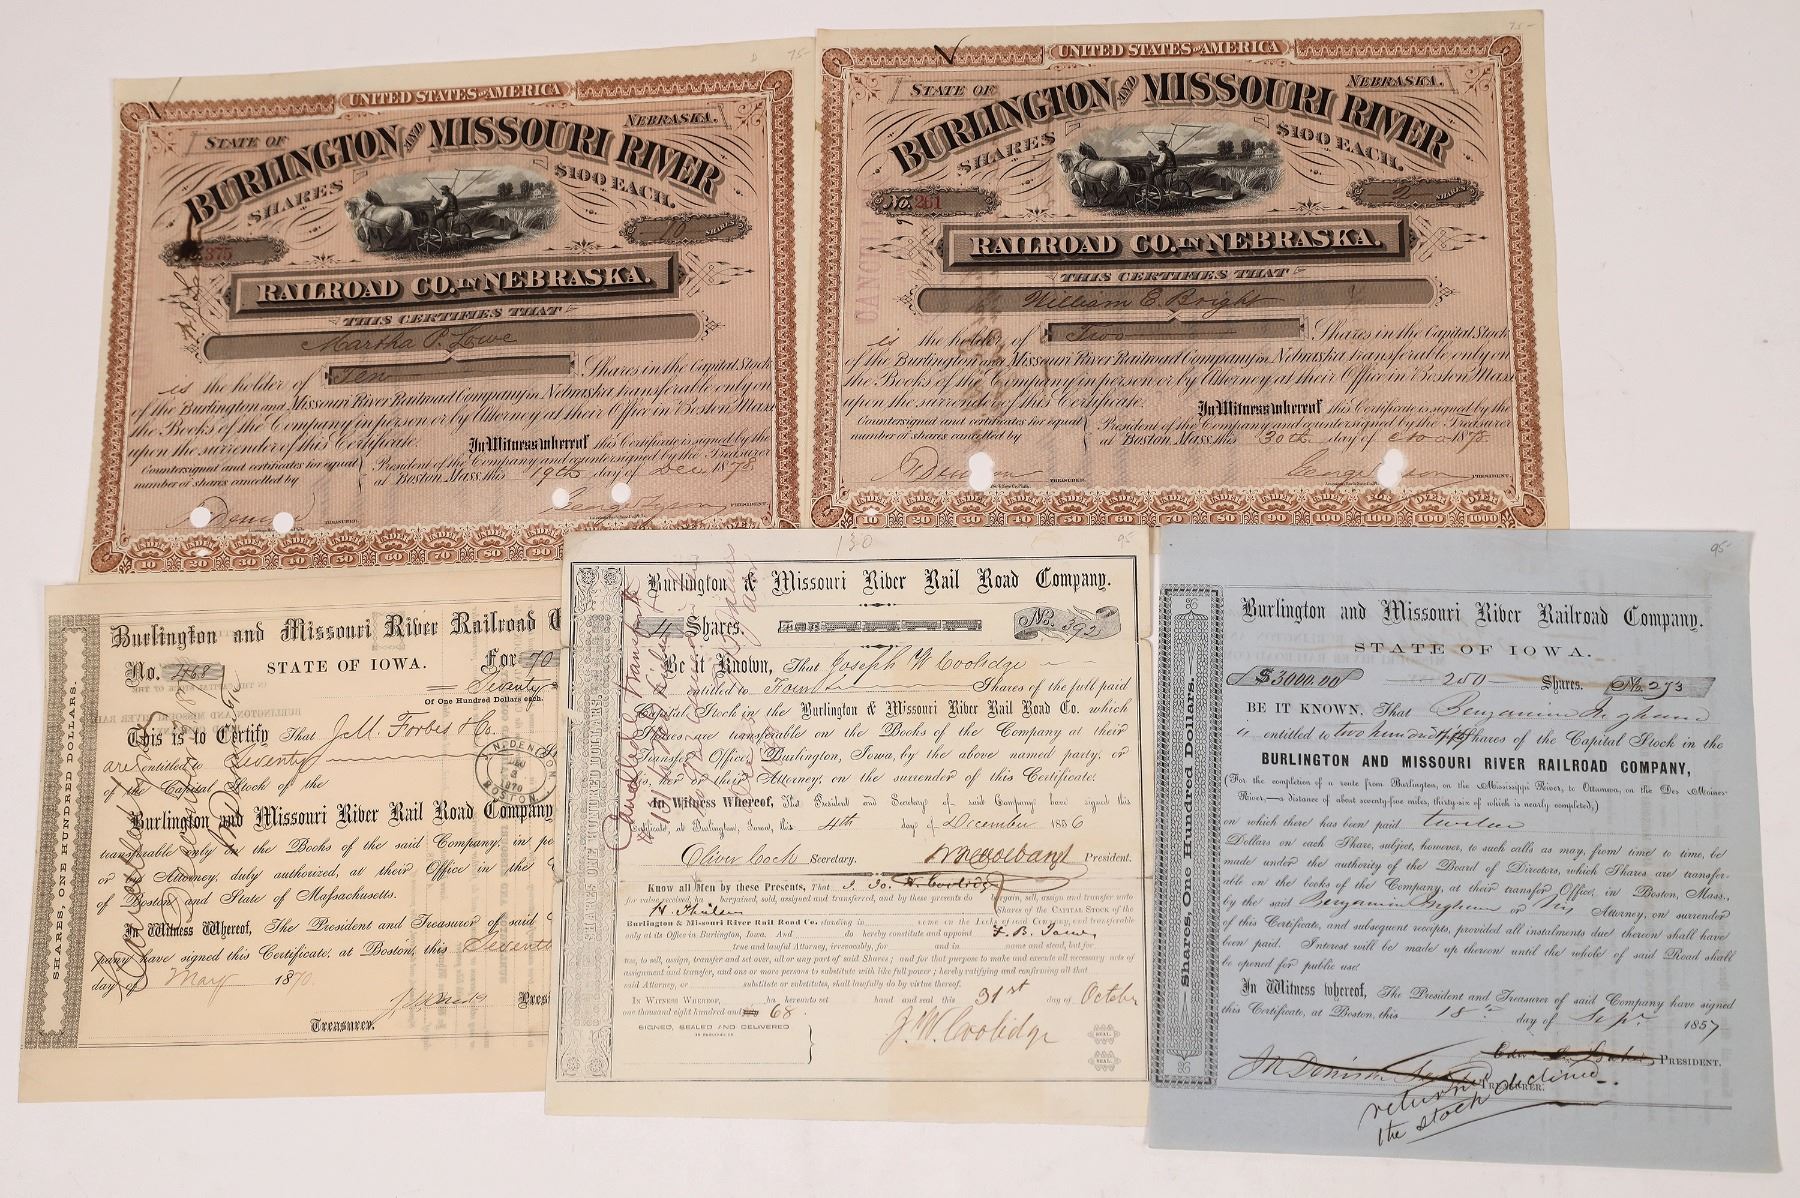 75-
UNITED STATES OF AMERICA
STATE OF NEBRASKA.
BURLINGTON AND MISSOURI RIVER
SHARES $100 EACH.
No. 375
10 SHARES
RAILROAD CO. IN NEBRASKA.
THIS CERTIFIES THAT
Martha P. Lowe
is the holder of Ten Shares in the Capital Stock
of the Burlington and Missouri River Railroad Company in Nebraska transferable only on
the Books of the Company in person or by Attorney at their Office in Boston Mass
upon the surrender of this Certificate.
In Witness whereof this Certificate is signed by the
President of the Company and countersigned by the Treasurer
at Boston Mass. this 19th day of Dec. 1878
Countersigned and certificates for equal
number of shares cancelled by
TREASURER.
PRESIDENT.
UNDER 10 UNDER 20 UNDER 30 UNDER 40 UNDER 50 UNDER 60 UNDER 70 UNDER 80 UNDER 90
75-
UNITED STATES OF AMERICA
STATE OF NEBRASKA.
BURLINGTON AND MISSOURI RIVER
SHARES $100 EACH.
No. 261
2 SHARES
RAILROAD CO. IN NEBRASKA.
THIS CERTIFIES THAT
William E. Bright
is the holder of Two Shares in the Capital Stock
of the Burlington and Missouri River Railroad Company in Nebraska transferable only on
the Books of the Company in person or by Attorney at their Office in Boston Mass
upon the surrender of this Certificate.
In Witness whereof this Certificate is signed by the
President of the Company and countersigned by the Treasurer
at Boston Mass. this 30th day of 1878
Countersigned and certificates for equal
number of shares cancelled by
TREASURER.
PRESIDENT.
UNDER 10 UNDER 20 UNDER 30 UNDER 40 UNDER 50 UNDER 60 UNDER 70 UNDER 80 UNDER 90 UNDER 100 FOR 100 OVER 100 OVER 1000
SHARES, ONE HUNDRED DOLLARS.
Burlington and Missouri River Railroad
No. 468 STATE OF IOWA. For 70
Seventy
Of One Hundred Dollars each.
This is to Certify That J. M. Forbes & Co.
are entitled to Seventy
of the Capital Stock of the
Burlington and Missouri River Rail Road Company
transferable only on the Books of the said Company, in
or by Attorney, duly authorized, at their Office in the
of Boston and State of Massachusetts.
In Witness Whereof, The President and Treasurer of said
pany have signed this Certificate, at Boston, this Seventh
day of May 1870.
Treasurer.
J. N. DENISON
1870
BOSTON
130
95
SHARES ONE HUNDRED DOLLARS.
Burlington & Missouri River Rail Road Company.
4 Shares. No. 392
Be it Known, That Joseph W Coolidge
entitled to Four Shares of the full paid
Capital Stock in the Burlington & Missouri River Rail Road Co. which
Shares are transferable on the Books of the Company at their
Transfer Office, Burlington, Iowa, by the above named party, or
his, her or their Attorney, on the surrender of this Certificate.
In Witness Whereof, The President and Secretary of said Company have signed this
Certificate, at Burlington, Iowa, this 4th day of December 1856
Oliver Cock Secretary. President.
Know all Men by these Presents, That I Jo. W. Coolidge
for value received, have bargained, sold, assigned and transferred, and by these presents do bargain, sell, assign and transfer unto
Shares of the CAPITAL STOCK of the
Burlington & Missouri River Rail Road Co. standing in name on the Books of said COMPANY, and transferable
only at its Office in Burlington, Iowa. And do hereby constitute and appoint
true and lawful Attorney, irrevocably, for and in name and stead, but for
use, to sell, assign, transfer and set over, all or any part of said Shares; and for that purpose to make and execute all necessary acts of
assignment and transfer, and one or more persons to substitute with like full power; hereby ratifying and confirming all that
said Attorney, or substitute or substitutes, shall lawfully do by virtue thereof.
IN WITNESS WHEREOF, have hereunto set hand and seal this 31st day of October
one thousand eight hundred and 68.
SIGNED, SEALED AND DELIVERED
IN PRESENCE OF
J. W. Coolidge
SEAL.
SEAL.
95-
Shares, One Hundred Dollars.
Burlington and Missouri River Railroad Company.
STATE OF IOWA.
$3000.00 250 Shares. No. 273
BE IT KNOWN, That Benjamin Ingham
is entitled to two hundred fifty Shares of the Capital Stock in the
BURLINGTON AND MISSOURI RIVER RAILROAD COMPANY,
(For the completion of a route from Burlington, on the Mississippi River, to Ottumwa, on the Des Moines
River,—a distance of about seventy-five miles, thirty-six of which is nearly completed,)
on which there has been paid twelve
Dollars on each Share, subject, however, to such calls as may, from time to time, be
made under the authority of the Board of Directors, which Shares are transfer-
able on the books of the Company, at their transfer Office, in Boston, Mass.,
by the said Benjamin Ingham or his Attorney, on surrender
of this Certificate, and subsequent receipts, provided all instalments due thereon shall have
been paid. Interest will be made up thereon until the whole of said Road shall
be opened for public use.
In Witness whereof, The President and Treasurer of said Company have signed
this Certificate, at Boston, this 18th day of Sept. 1857
PRESIDENT.
TREASURER.
returned
the stock declined.